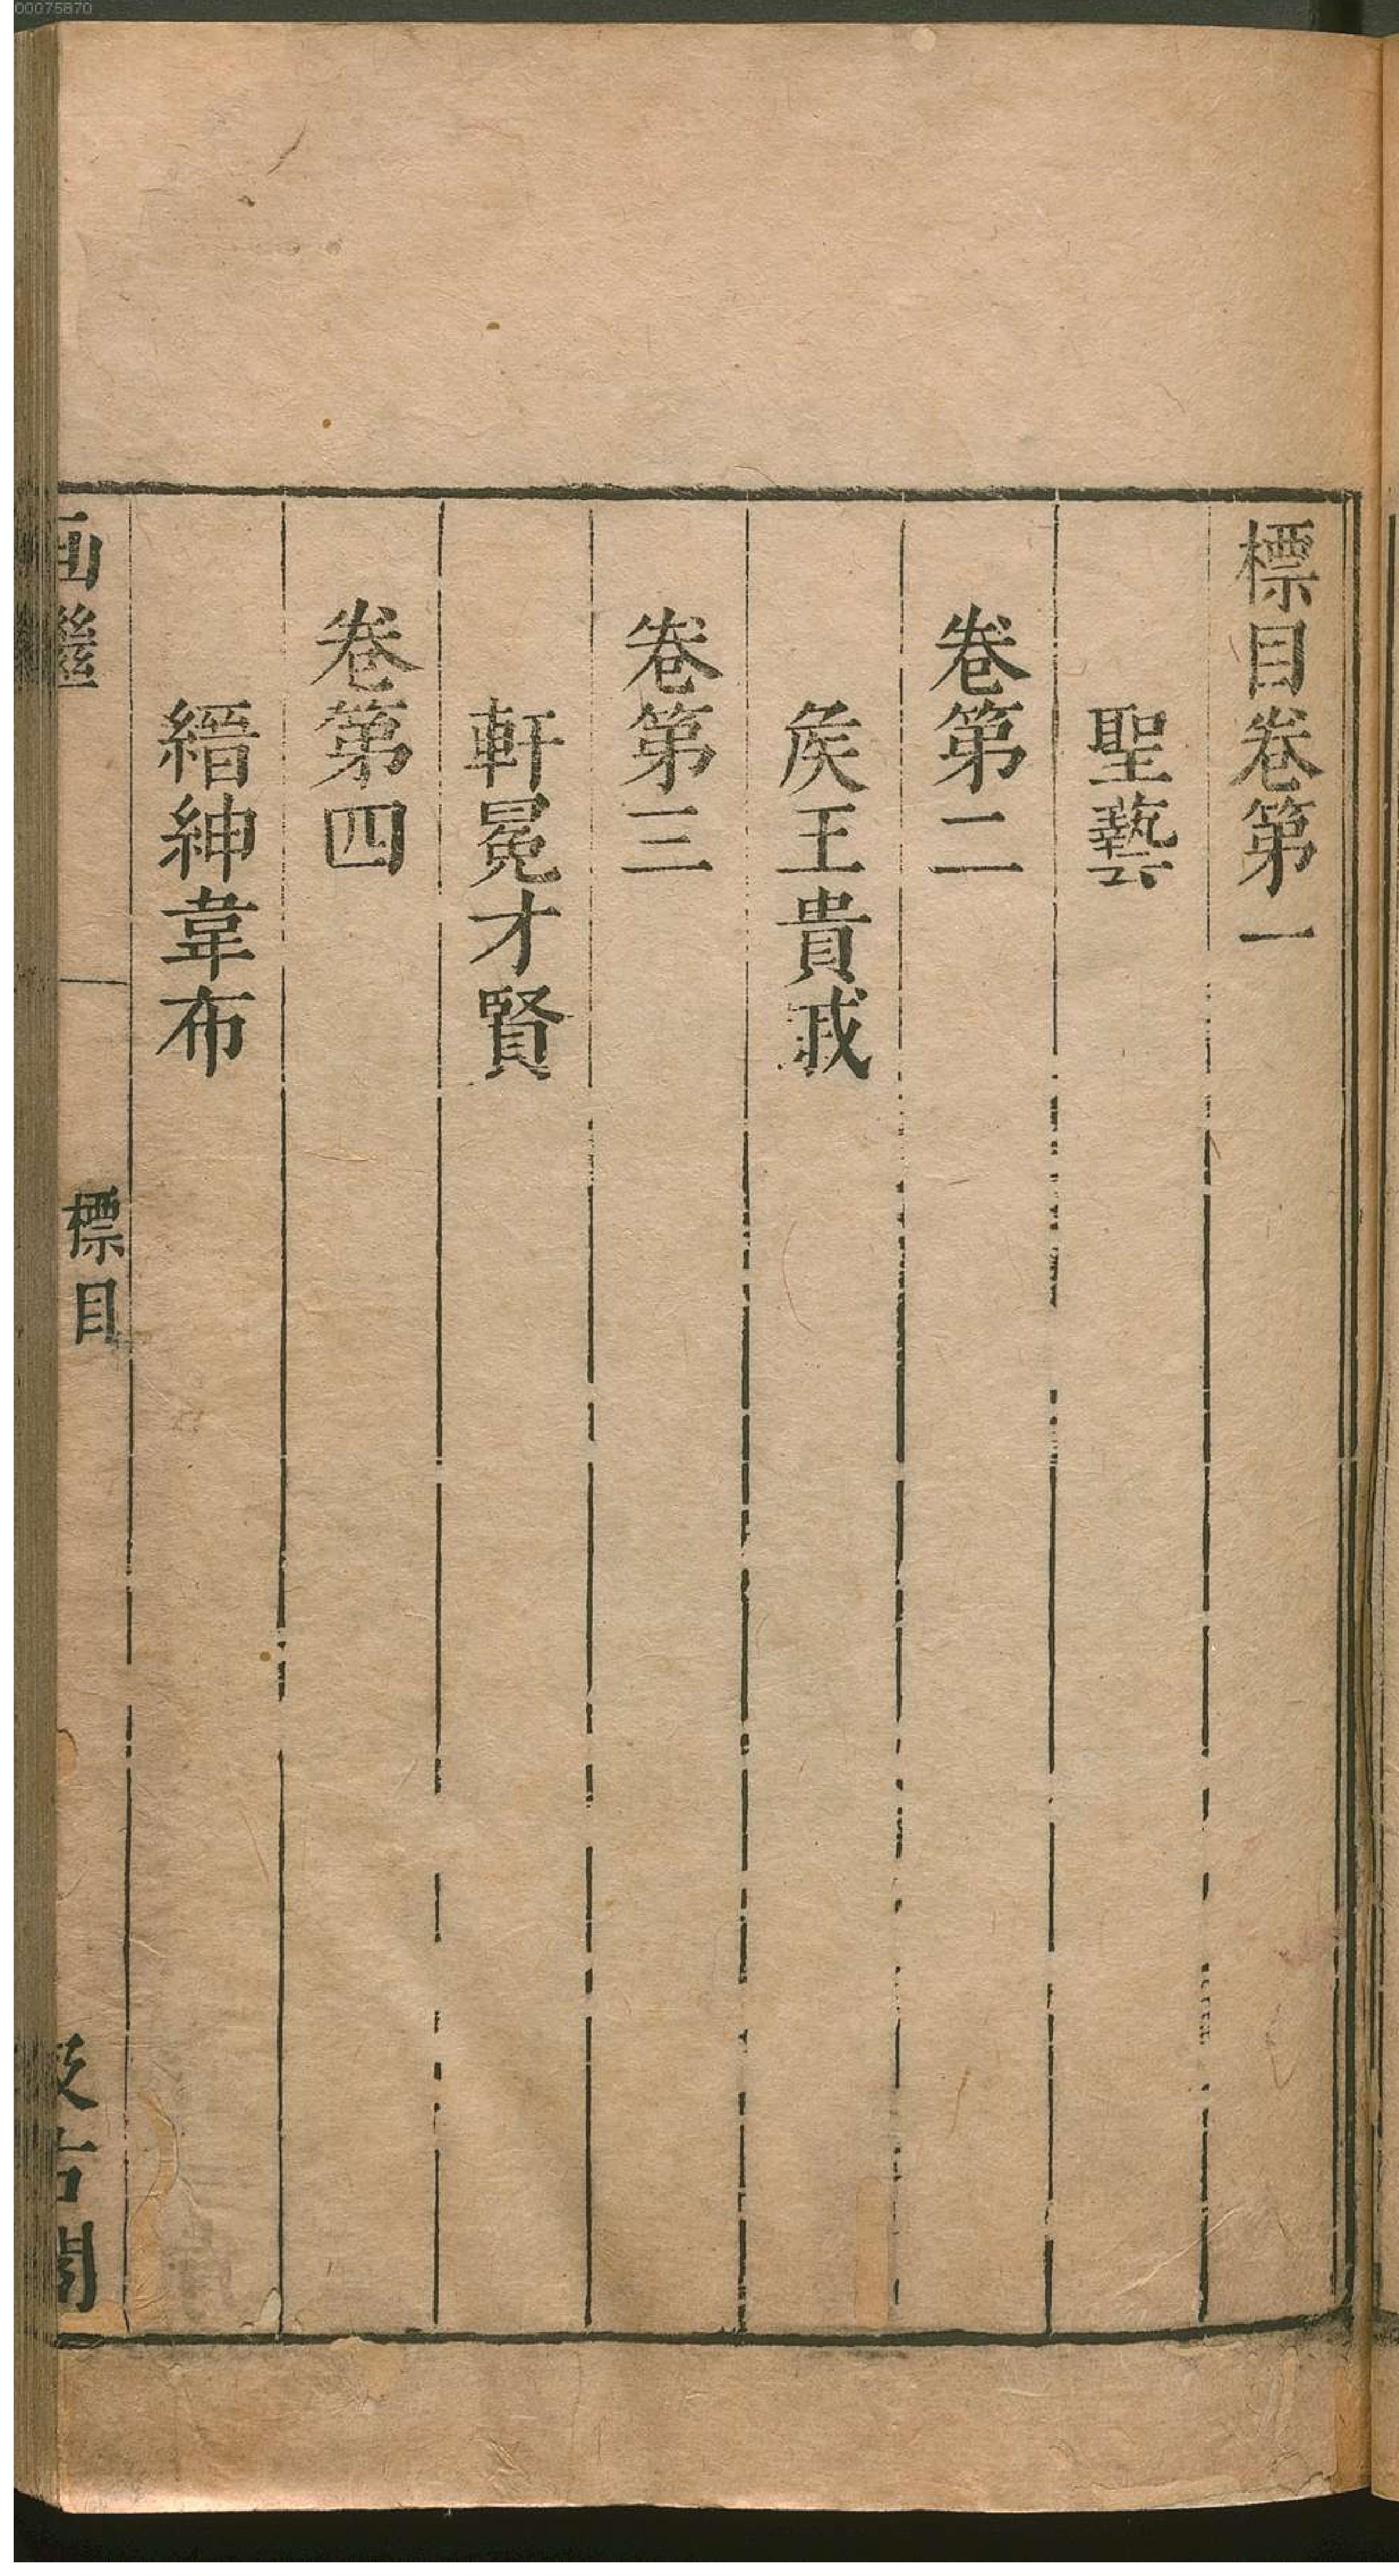 標目卷第一
聖藝
卷第二
矦王貴戚
卷第三
軒冕才賢
卷第四
縉紳韋布
画繼
標目
汲古閣
00075870